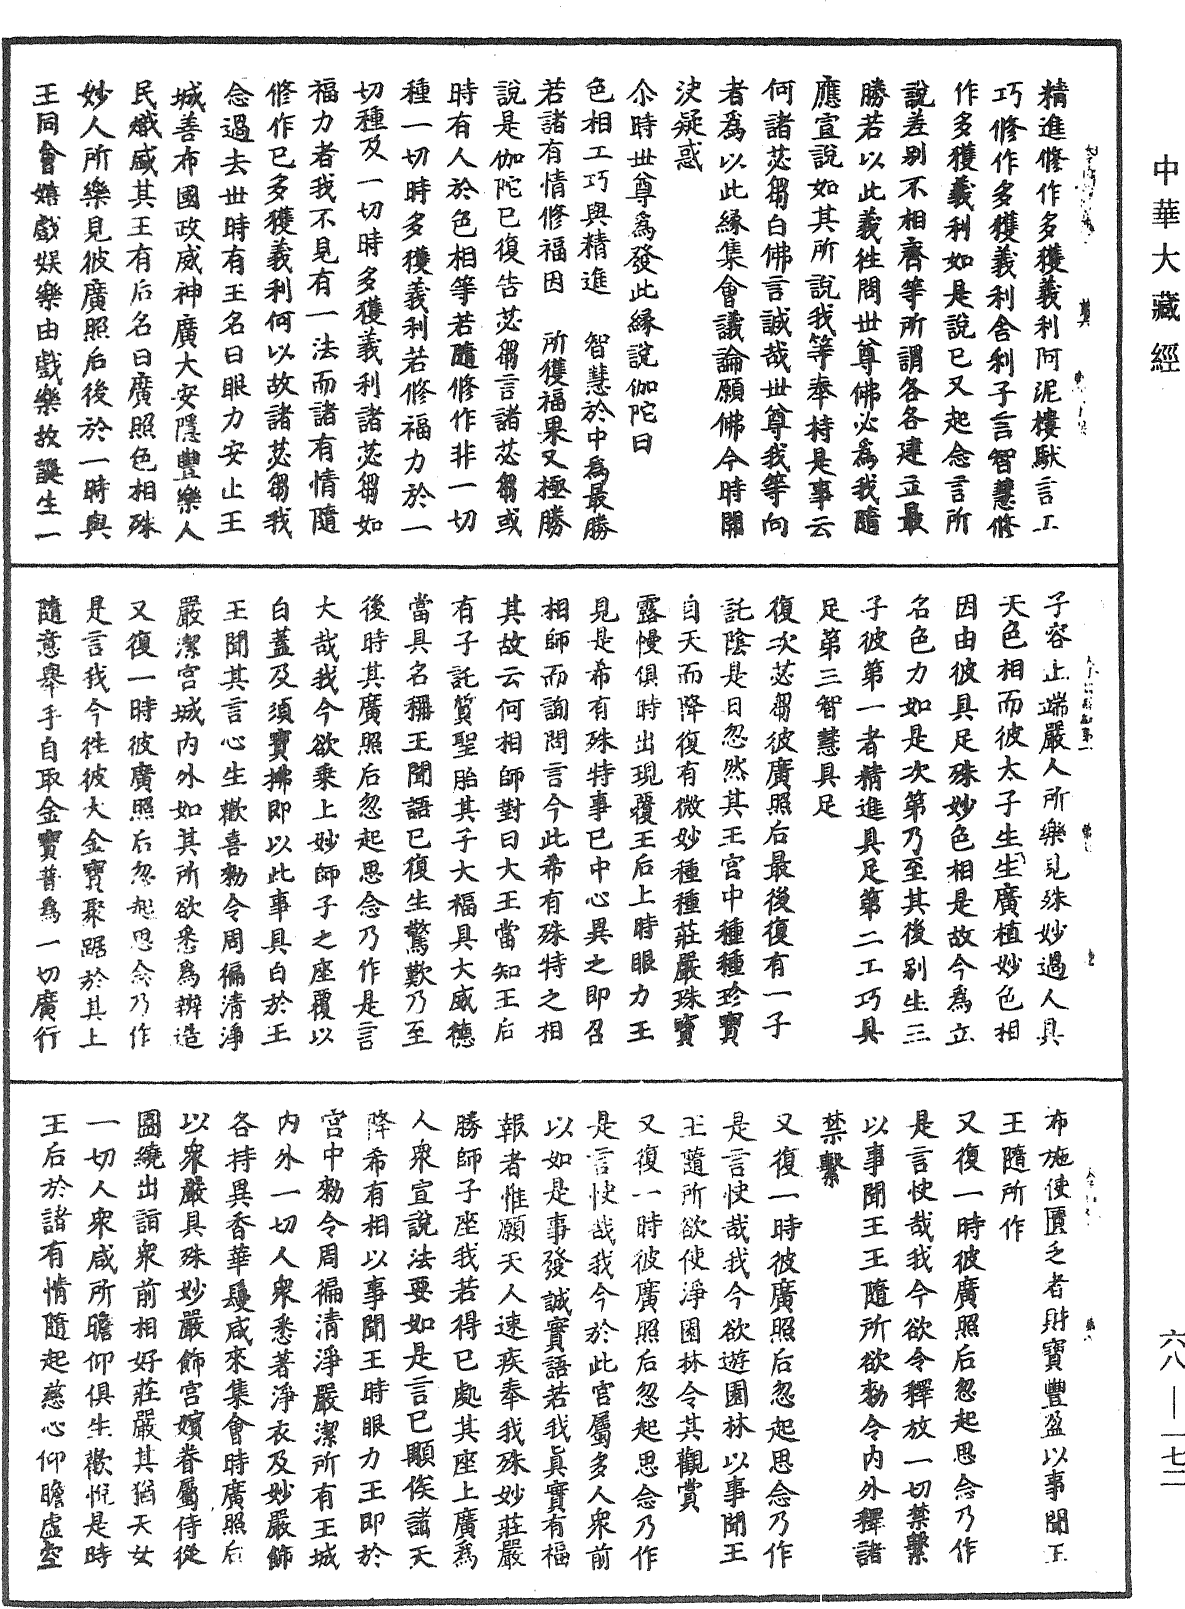 中華大藏經
精進修作多獲義利阿泥樓馱言工
巧修作多獲義利舍利子言智慧修
作多獲義利如是說已又起念言所
說差別不相齊等所謂各各建立最
勝若以此義徃問世尊佛必爲我隨
應宣說如其所說我等奉持是事云
何諸苾芻白佛言誠哉世尊我等向
者爲以此緣集會議論願佛今時開
決疑惑
尒時世尊爲發此緣說伽陀曰
色相工巧與精進　智慧於中爲最勝
若諸有情修福因　所獲福果又極勝
說是伽陀已復告苾芻言諸苾芻或
時有人於色相等若隨修作非一切
種一切時多獲義利若修福力於一
切種及一切時多獲義利諸苾芻如
福力者我不見有一法而諸有情隨
修作已多獲義利何以故諸苾芻我
念過去世時有王名曰眼力安止王
城善布國政威神廣大安隱豐樂人
民熾盛其王有后名曰廣照色相殊
妙人所樂見彼廣照后後於一時與
王同會嬉戲娛樂由戲樂故誕生一
子容止端嚴人所樂見殊妙過人具
天色相而彼太子生生廣植妙色相
因由彼具足殊妙色相是故今爲立
名色力如是次第乃至其後別生三
子彼第一者精進具足第二工巧具
足第三智慧具足
復次苾芻彼廣照后最後復有一子
託陰是日忽然其王宮中種種珍寶
自天而降復有微妙種種莊嚴珠寶
露幔俱時出現覆王后上時眼力王
見是希有殊特事已中心異之即召
相師而詢問言今此希有殊特之相
其故云何相師對曰大王當知王后
有子託質聖胎其子大福具大威德
當具名稱王聞語已復生驚歎乃至
後時其廣照后忽起思念乃作是言
大哉我今欲乘上妙師子之座覆以
白蓋及須寶拂即以此事具白於王
王聞其言心生歡喜勑令周徧清淨
嚴潔宮城內外如其所欲悉爲辦造
又復一時彼廣照后忽起思念乃作
是言我今徃彼大金寶聚踞於其上
隨意舉手自取金寶普爲一切廣行
布施使匱乏者財寶豐盈以事聞王
王隨所作
又復一時彼廣照后忽起思念乃作
是言快哉我今欲令釋放一切禁繫
以事聞王王隨所欲勑令內外釋諸
禁繫
又復一時彼廣照后忽起思念乃作
是言快哉我今欲遊園林以事聞王
王隨所欲使淨園林令其觀賞
又復一時彼廣照后忽起思念乃作
是言快哉我今於此宮屬多人衆前
以如是事發誠實語若我眞實有福
報者惟願天人速疾奉我殊妙莊嚴
勝師子座我若得已處其座上廣爲
人衆宣說法要如是言已顒俟諸天
降希有相以事聞王時眼力王即於
宮中勑令周徧清淨嚴潔所有王城
內外一切人衆悉著淨衣及妙嚴飾
各持異香華鬘咸來集會時廣照后
以衆嚴具殊妙嚴飾宮嬪眷屬侍從
圍繞出詣衆前相好莊嚴其猶天女
一切人衆咸所瞻仰俱生歡悅是時
王后於諸有情隨起慈心仰瞻虛空
六八—一七二